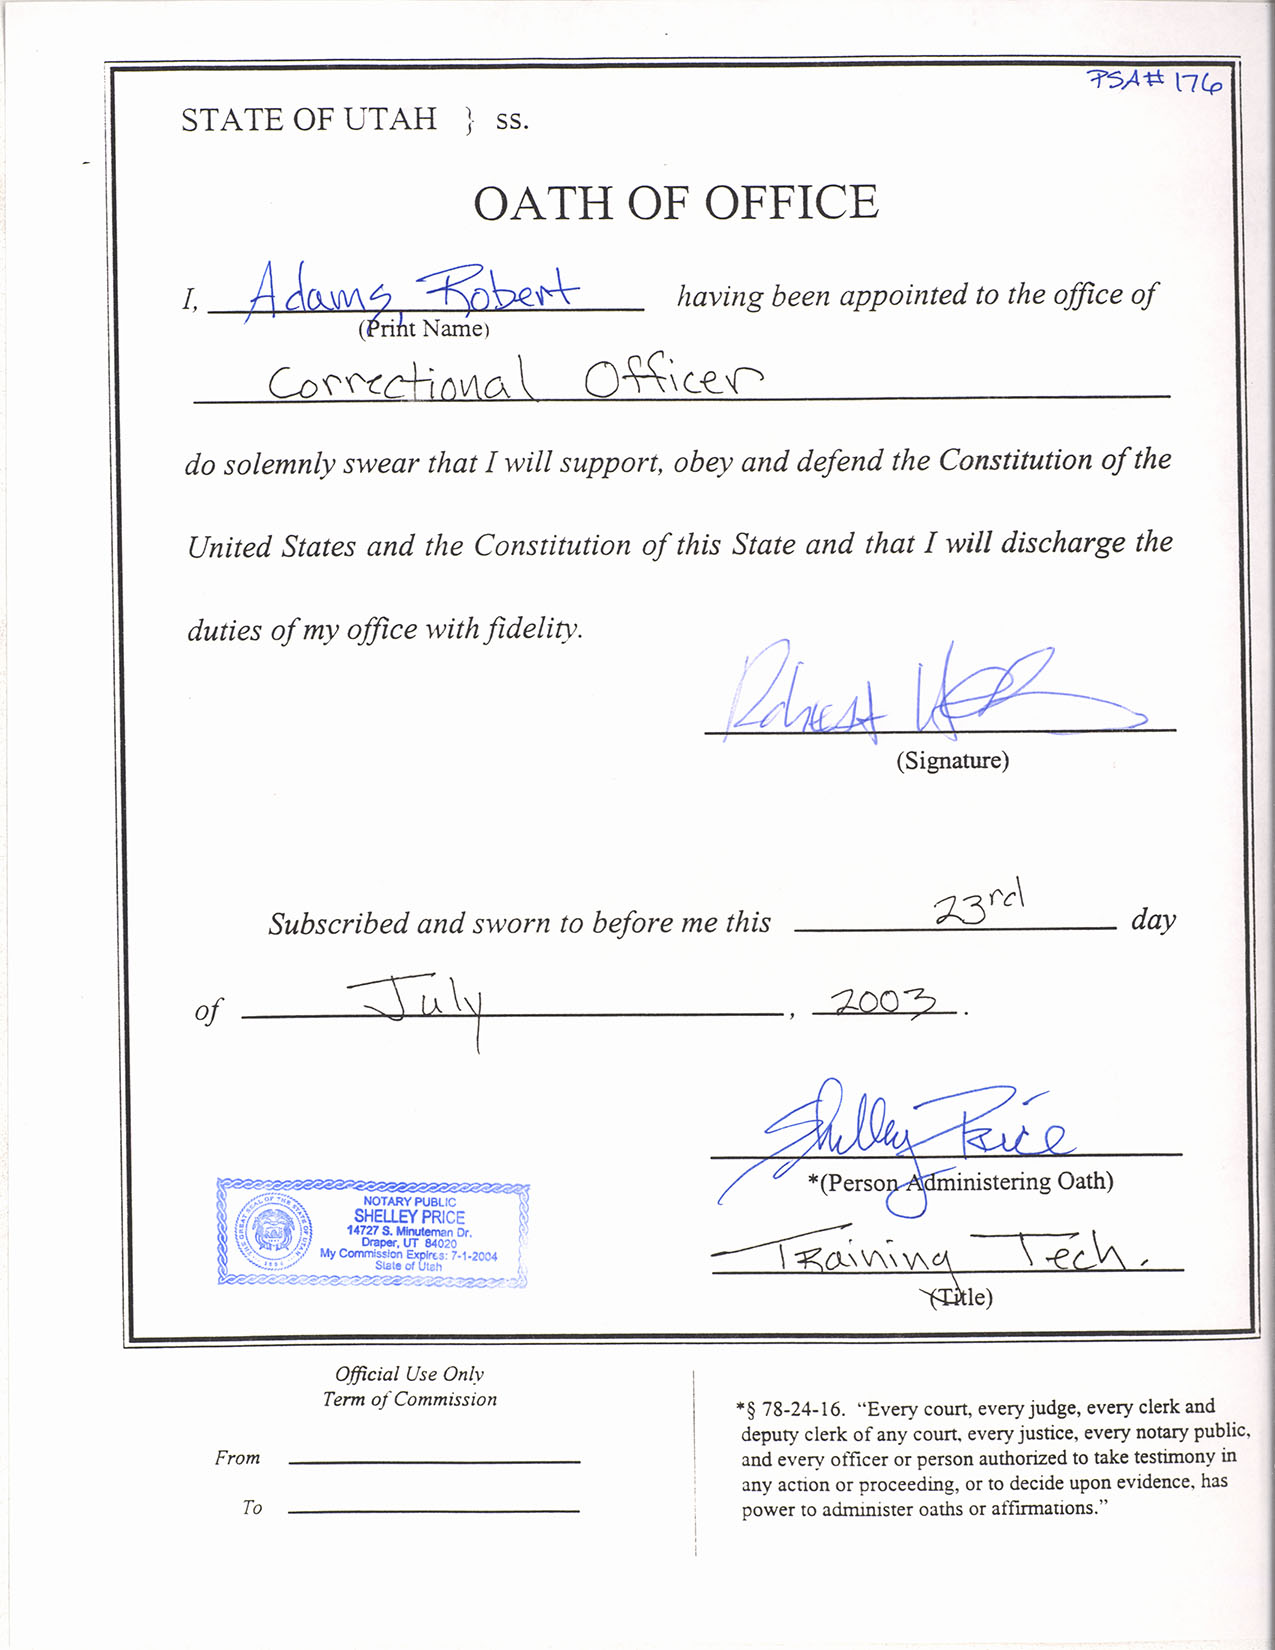 PSA# 176
STATE OF UTAH } ss.
OATH OF OFFICE
I, Adams, Robert having been appointed to the office of
(Print Name)
Correctional Officer
do solemnly swear that I will support, obey and defend the Constitution of the
United States and the Constitution of this State and that I will discharge the
duties of my office with fidelity.
Robert
(Signature)
Subscribed and sworn to before me this 23rd day
of July, 2003.
Shelley Price
*(Person Administering Oath)
NOTARY PUBLIC
SHELLEY PRICE
14727 S. Minuteman Dr.
Draper, UT 84020
My Commission Expires: 7-1-2004
State of Utah
Training Tech.
(Title)
Official Use Only
Term of Commission
From
To
*§ 78-24-16. “Every court, every judge, every clerk and
deputy clerk of any court, every justice, every notary public,
and every officer or person authorized to take testimony in
any action or proceeding, or to decide upon evidence, has
power to administer oaths or affirmations.”